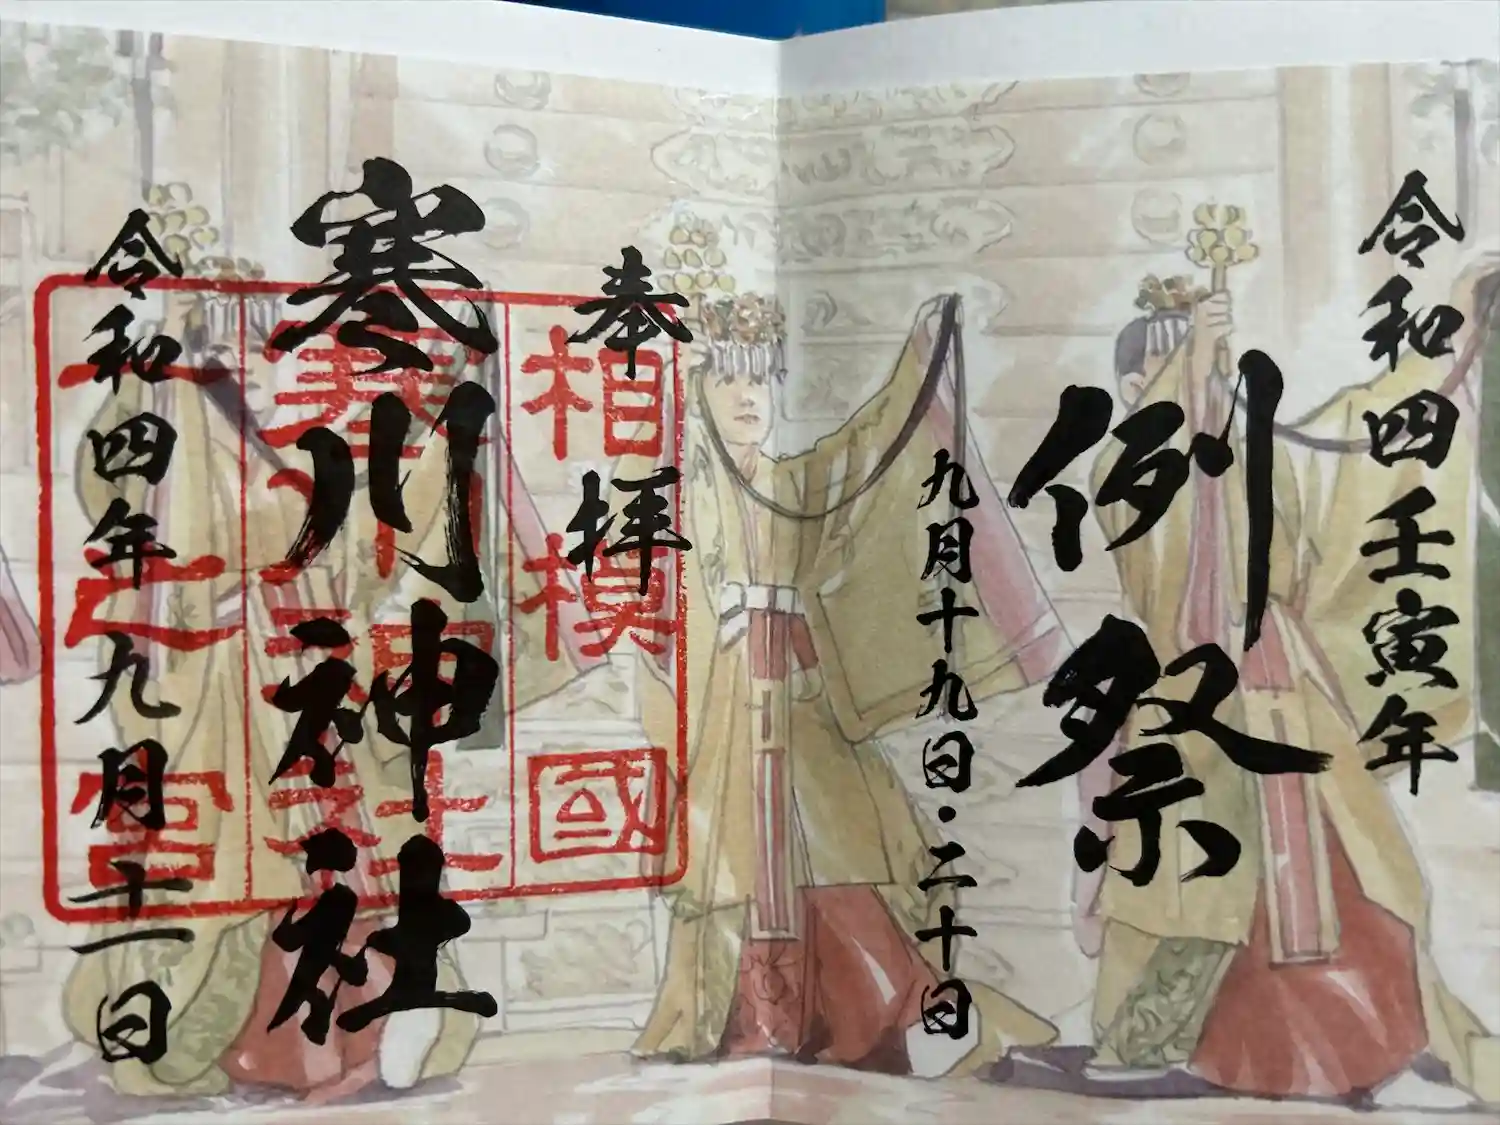 令和四壬寅年
例祭
九月十九日・二十日
奉拝
寒川神社
令和四年九月十一日
相模國
寒川神社
一之宮